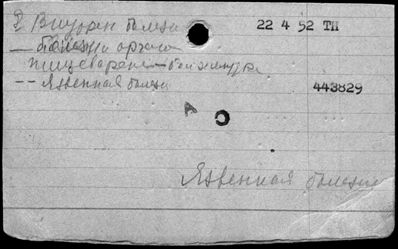 Внутрен болезни 22 4 52 ТП
— болезни органов
пищеварения — бол желудка
-- Язвенная болезнь 443829
А
Язвенная болезнь